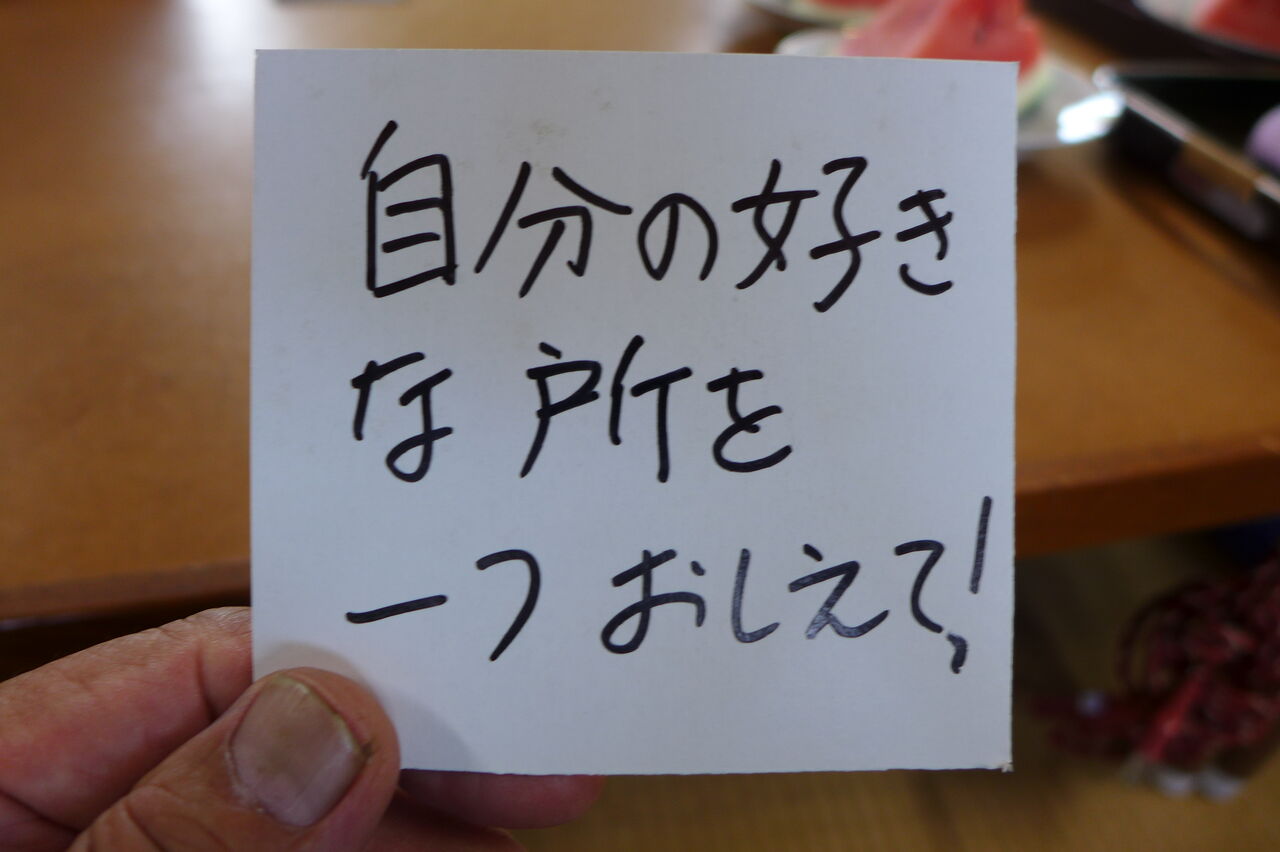 自分の好き
な所を
一つおしえて!